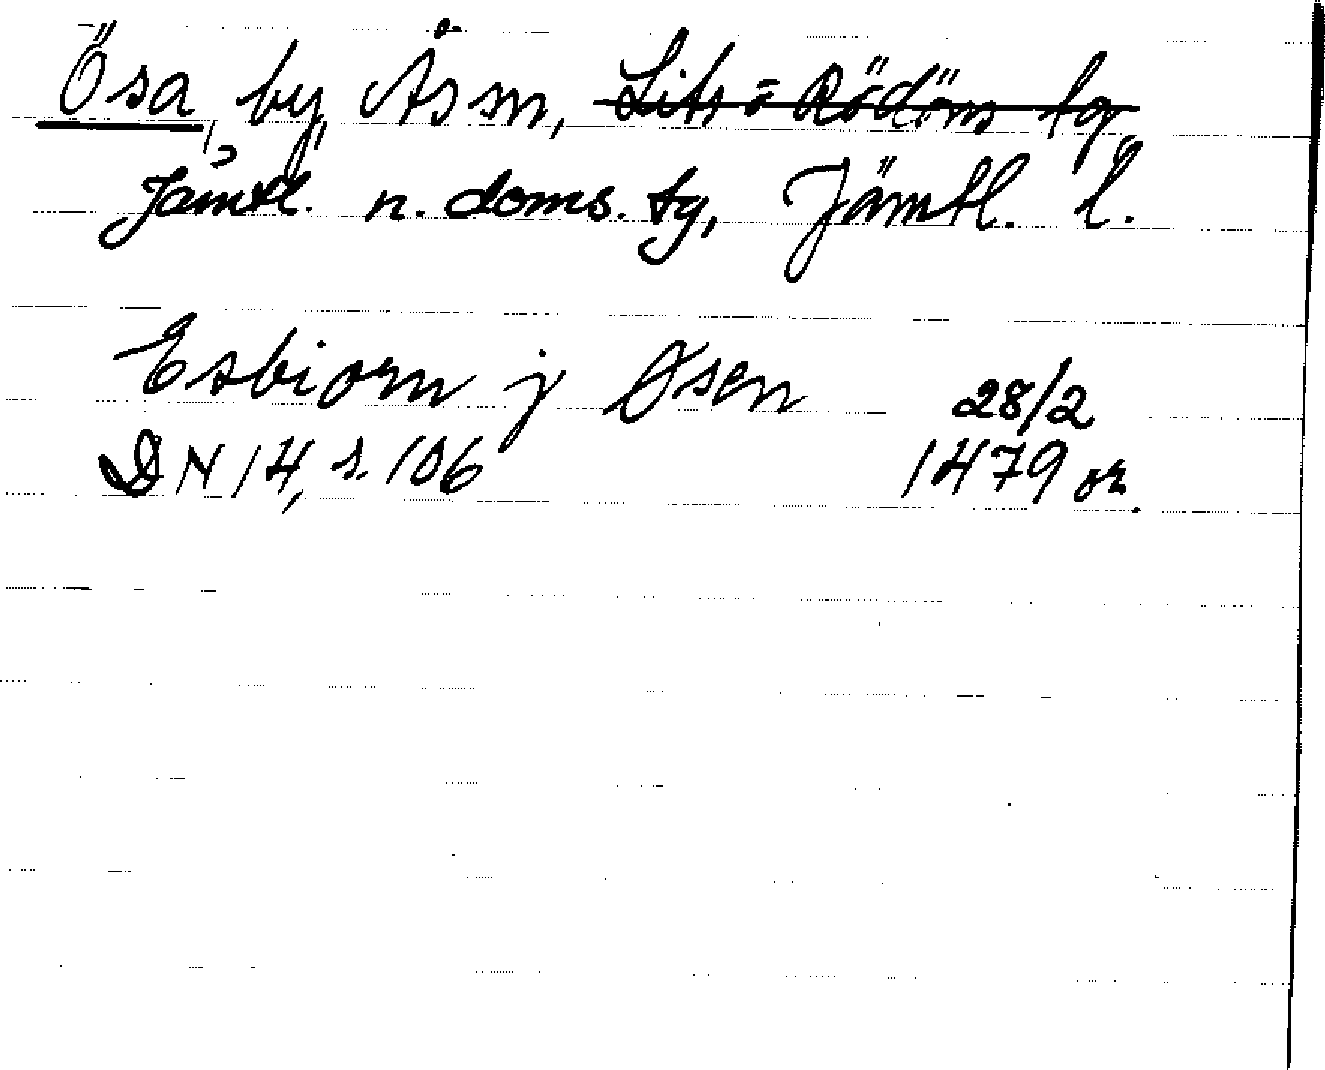 Ösa, by, Ås sn, Lits o Rödöns tg,
Jämtl. n. doms. tg, Jämtl. l.
Esbiorn j Øsen 28/2
DN 14, s. 106 1479 or.